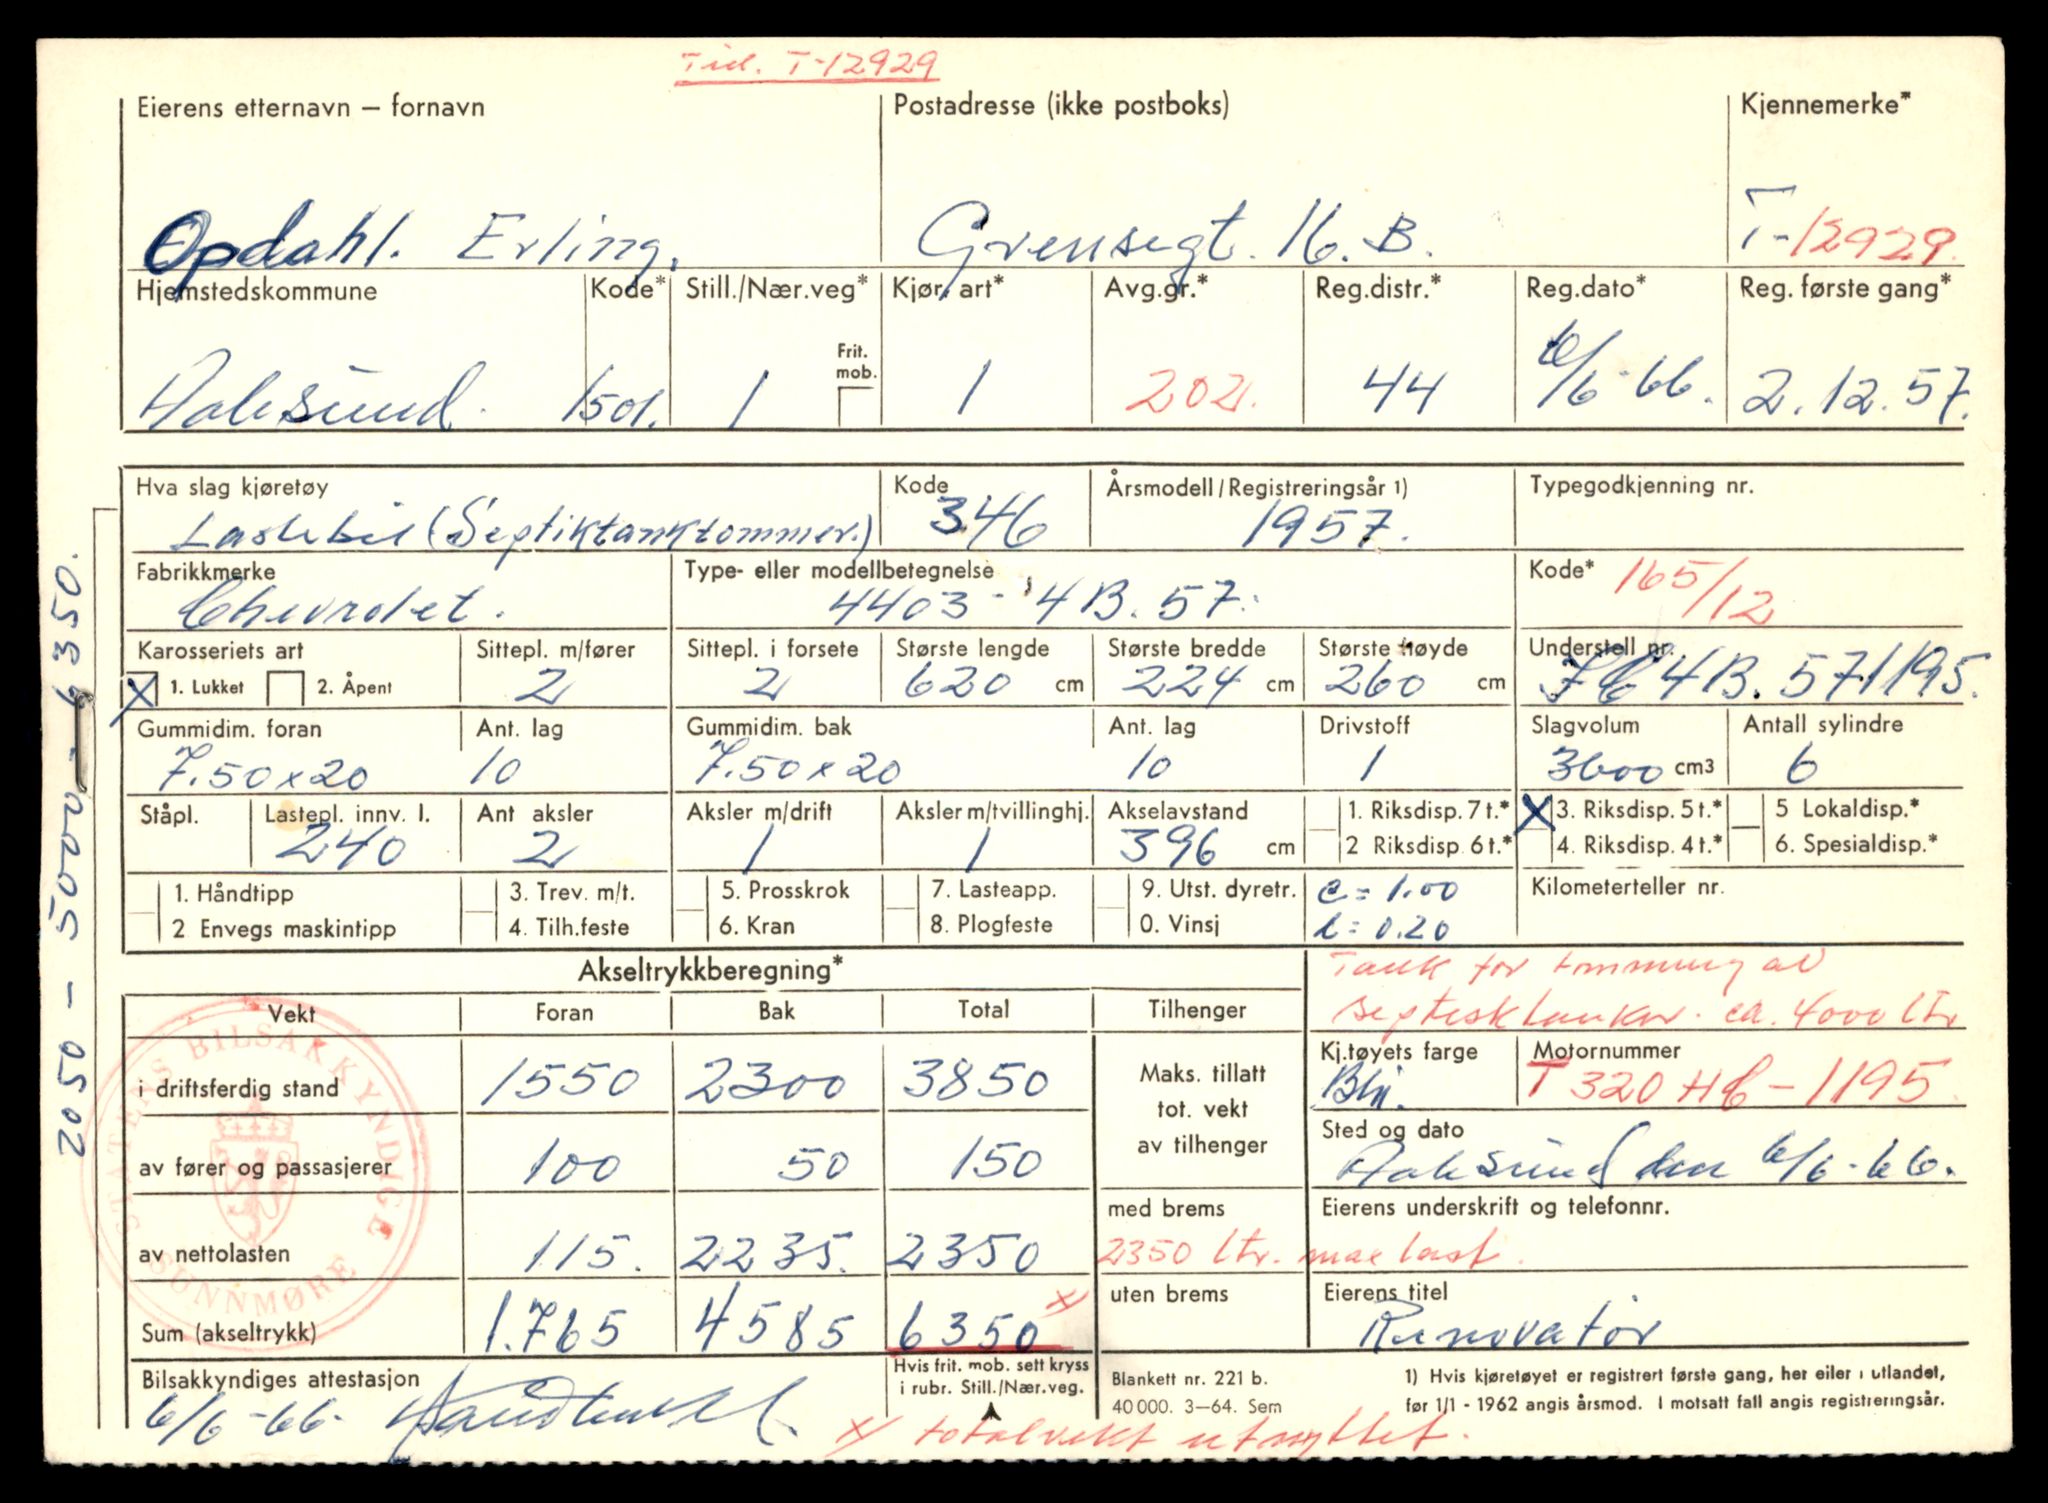 Tid. T-12929
Eierens etternavn – fornavn
Postadresse (ikke postboks)
Kjennemerke*
Opdahl. Erling.
Grensegt. 16. B.
T-12929.
Hjemstedskommune
Kode*
Still./Nær.veg*
Kjør. art*
Avg.gr.*
Reg.distr.*
Reg.dato*
Reg. første gang*
Frit. mob.
Aalesund.
1501.
1
1
202.
44
6/6-66.
2.12.57.
Hva slag kjøretøy
Kode
Årsmodell/Registreringsår 1)
Typegodkjenning nr.
Lastebil (Septiktanktømmer.)
346
1957.
Fabrikkmerke
Type- eller modellbetegnelse
Kode* 165/12
Chevrolet.
4403 - 4B. 57.
Karosseriets art
Sittepl. m/fører
Sittepl. i forsete
Største lengde
Største bredde
Største høyde
Understell nr.
X 1. Lukket
2. Åpent
2
2
620 cm
224 cm
260 cm
4B. 571195.
Gummidim. foran
Ant. lag
Gummidim. bak
Ant. lag
Drivstoff
Slagvolum
Antall sylindre
7.50x20
10
7.50x20
10
1
3600 cm3
6
Ståpl.
Lastepl. innv. l.
Ant aksler
Aksler m/drift
Aksler m/tvillinghj.
Akselavstand
1. Riksdisp. 7 t.*
X 3. Riksdisp. 5 t.*
5 Lokaldisp.*
240
2
1
1
396 cm
2 Riksdisp. 6 t.*
4. Riksdisp. 4 t.*
6. Spesialdisp.*
1. Håndtipp
3. Trev. m/t.
5. Prosskrok
7. Lasteapp.
9. Utst. dyretr.
= 1.00
Kilometerteller nr.
2 Envegs maskintipp
4. Tilh.feste
6. Kran
8. Plogfeste
0. Vinsj
= 0.20
Akseltrykkberegning*
Tank for tømming av
septiktanker. ca. 4000 ltr
Vekt
Foran
Bak
Total
Tilhenger
Kj.tøyets farge
Motornummer
i driftsferdig stand
1550
2300
3850
Maks. tillatt
tot. vekt
av tilhenger
Blå.
T 320 HC - 1195
Sted og dato
av fører og passasjerer
100
50
150
Aalesund den 6/6-66.
med brems
Eierens underskrift og telefonnr.
av nettolasten
115.
2235.
2350
2350 ltr. max last.
uten brems
Eierens titel
Sum (akseltrykk)
1.765
4585
6350 x)
Renovatør
Bilsakkyndiges attestasjon
Hvis frit. mob. sett kryss
i rubr. Still./Nær.veg.
Blankett nr. 221 b.
40 000. 3–64. Sem
1) Hvis kjøretøyet er registrert første gang, her eiler i utlandet,
før 1/1 - 1962 angis årsmod. I motsatt fall angis registreringsår.
6/6-66.
x) totalvekt utnyttet.
2050 - 5000 - 6350.
STATENS BILSAKKYNDIGE
SUNNMØRE